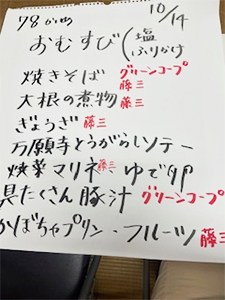 10/14
78かめ
おむすび(塩
ふりかけ
焼きそば グリーンコープ
藤三
大根の煮物 藤三
ぎょうざ 藤三
万願寺とうがらしソテー
焼菜マリネ 藤三 ゆで卵
具たくさん豚汁 グリーンコープ
かぼちゃプリン・フルーツ 藤三